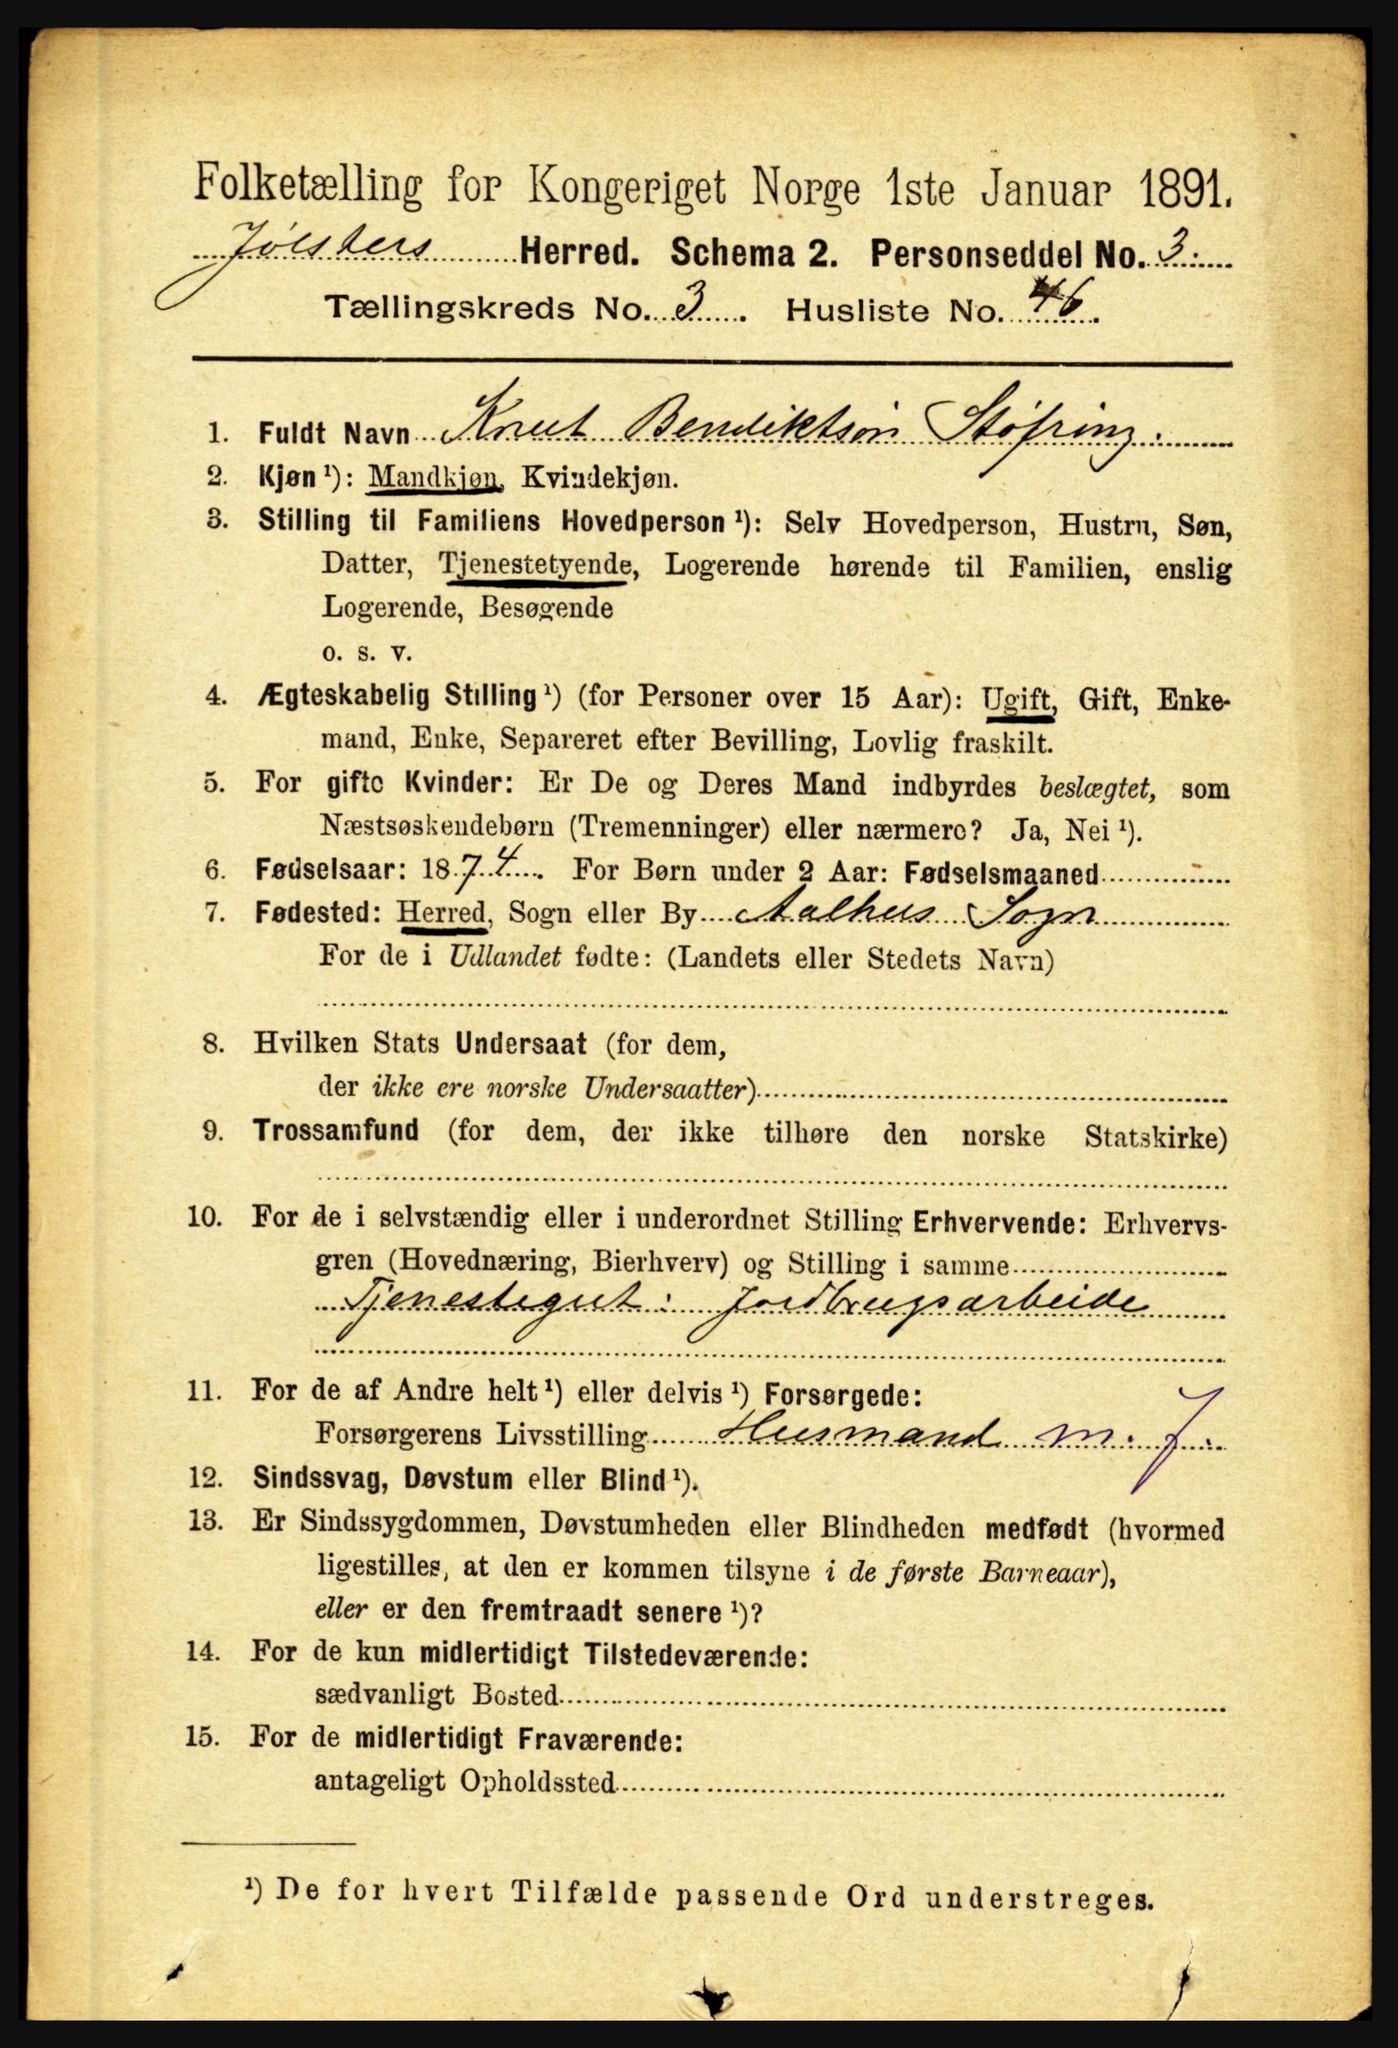 Folketælling for Kongeriget Norge 1ste Januar 1891.
Jølsters Herred. Schema 2. Personseddel No. 3.
Tællingskreds No. 3. Husliste No. 46.
1. Fuldt Navn Knut Bendiktsøn Støfring.
2. Kjøn¹): Mandkjøn, Kvindekjøn.
3. Stilling til Familiens Hovedperson¹): Selv Hovedperson, Hustru, Søn,
Datter, Tjenestetyende, Logerende hørende til Familien, enslig
Logerende, Besøgende
o. s. v.
4. Ægteskabelig Stilling¹) (for Personer over 15 Aar): Ugift, Gift, Enke-
mand, Enke, Separeret efter Bevilling, Lovlig fraskilt.
5. For gifte Kvinder: Er De og Deres Mand indbyrdes beslægtet, som
Næstsøskendebørn (Tremenninger) eller nærmere? Ja, Nei¹).
6. Fødselsaar: 1874. For Børn under 2 Aar: Fødselsmaaned
7. Fødested: Herred, Sogn eller By Aalhus Sogn
For de i Udlandet fødte: (Landets eller Stedets Navn)
8. Hvilken Stats Undersaat (for dem,
der ikke ere norske Undersaatter)
9. Trossamfund (for dem, der ikke tilhøre den norske Statskirke)
10. For de i selvstændig eller i underordnet Stilling Erhvervende: Erhvervs-
gren (Hovednæring, Bierhverv) og Stilling i samme
Tjenestegut: Jordbrugsarbeide
11. For de af Andre helt¹) eller delvis¹) Forsørgede:
Forsørgerens Livsstilling Husmand m. J.
12. Sindssvag, Døvstum eller Blind¹).
13. Er Sindssygdommen, Døvstumheden eller Blindheden medfødt (hvormed
ligestilles, at den er kommen tilsyne i de første Barneaar),
eller er den fremtraadt senere¹)?
14. For de kun midlertidigt Tilstedeværende:
sædvanligt Bosted
15. For de midlertidigt Fraværende:
antageligt Opholdssted
¹) De for hvert Tilfælde passende Ord understreges.